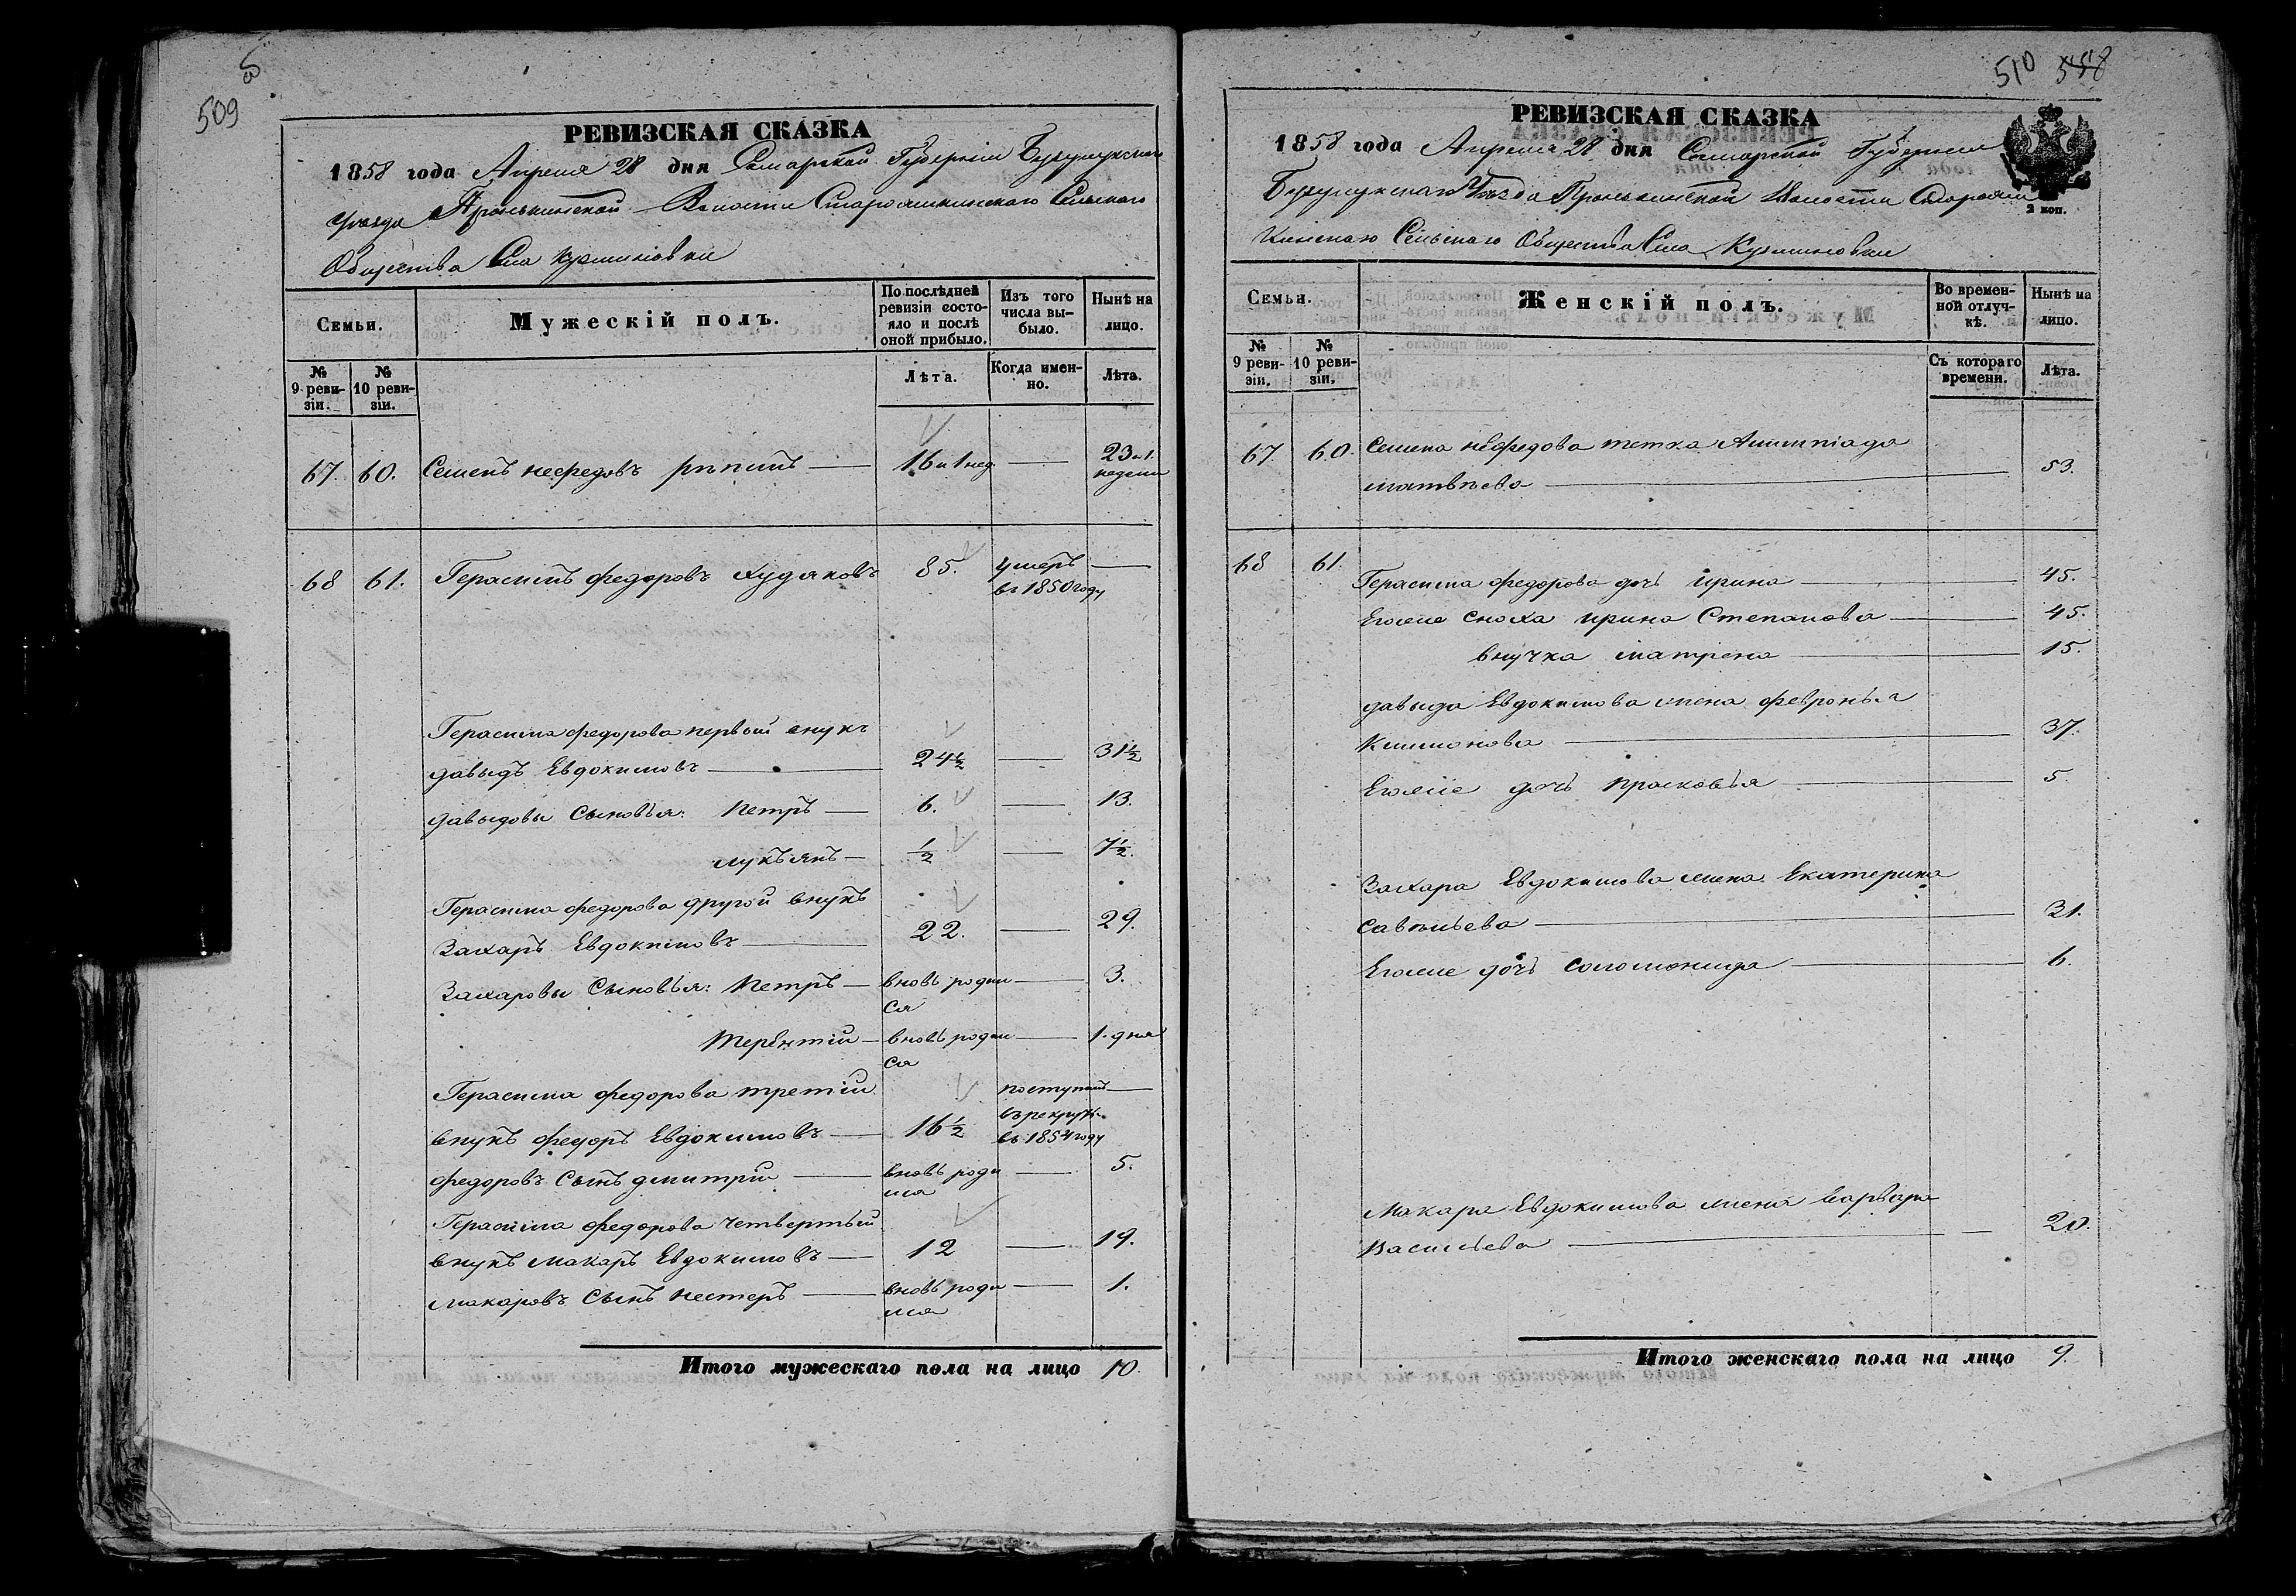 5
509
РЕВИЗСКАЯ СКАЗКА
1858 года Апреля 28 дня Самарской Губернiи Бузулукскаго
уѣзда Пронькинской Волости Старояшкинскаго Сельскаго
Общества Села Кузминовки
Семьи.
Мужескiй полъ.
По послѣдней ревизiи состояло и послѣ оной прибыло.
Изъ того числа выбыло.
Нынѣ на лицо.
№ 9 ревизiи.
№ 10 ревизiи.
Лѣта.
Когда именно.
Лѣта.
67. 60. Семенъ нефедовъ 16 и 1 нед. — 23 и 1. недели
68 61. Герасимъ федоровъ Худяковъ 85. умеръ —
въ 1850 году
Герасима федорова первый внукъ
давыдъ Евдокимовъ — 24½ — 31½
давыдовы Сыновья: Петръ — 6. — 13.
лукъянъ — ½ — 7½.
Герасима федорова другой внукъ
Захаръ Евдокимовъ — 22. — 29.
Захаровы Сыновья: Петръ — вновь родил — 3.
ся
Терентiй — вновь родил — 1. дня
ся
Герасима федорова третiй поступилъ —
въ рекруты
внукъ федоръ Евдокимовъ — 16½ въ 1854 году
федоровъ Сынъ дмитрiй — вновь роди — 5.
лся
Герасима федорова четвертый
внукъ макаръ Евдокимовъ — 12 — 19.
макаровъ Сынъ нестеръ — вновь роди — 1.
лся
Итого мужескаго пола на лицо 10.
510 558
РЕВИЗСКАЯ СКАЗКА
1858 года Апреля 28 дня Самарской Губернiи
Бузулукскаго Уѣзда Пронькинской Волости Старояш
кинскаго Сельскаго Общества Села Кузминовки
2 коп.
Семьи.
Женскiй полъ.
Во временной отлучкѣ.
Нынѣ на лицо.
№ 9 ревизiи.
№ 10 ревизiи.
Съ котораго времени.
Лѣта.
67 60. Семена нефедова тетка Алимпiада
матвѣева — 53.
68 61. Герасима федорова дочь ирина — 45.
Еголсе Сноха ирина Степанова — 45.
внучка матрена — 15.
давыда Евдокимова жена февронья
Климонова — 37.
Егоже дочь прасковья — 5.
Захара Евдокимова жена Екатерина
савельева — 31.
Егоже дочь соломонида — 6.
Макара Евдокимова жена варвара
Васильева — 20.
Итого женскаго пола на лицо 9.